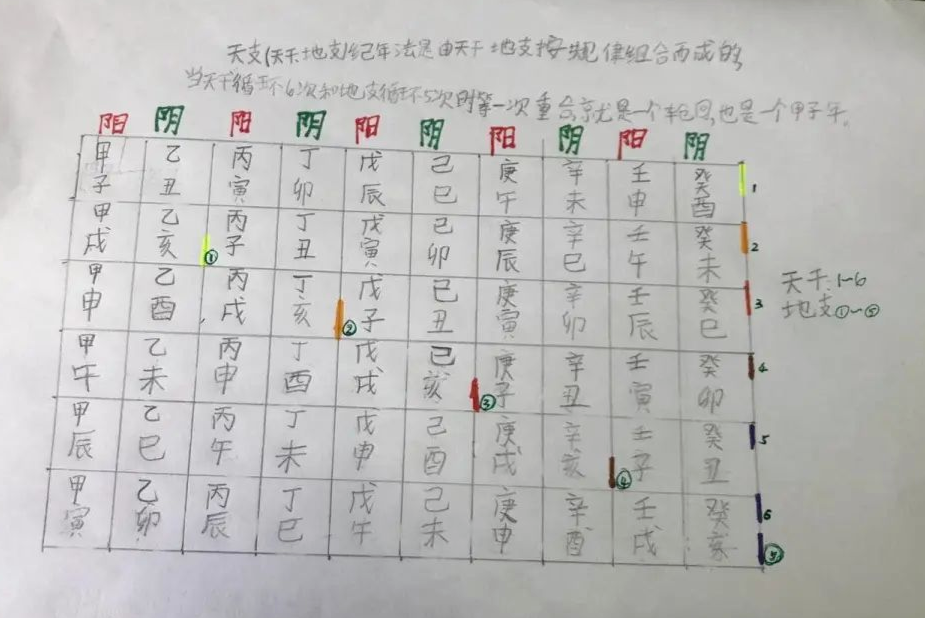 天支(天干地支)纪年法是由天干地支按规律组合而成的,
当天干循环6次和地支循环5次时第一次重合,就是一个轮回,也是一个甲子年.
阳 阴 阳 阴 阳 阴 阳 阴 阳 阴
甲子 乙丑 丙寅 丁卯 戊辰 己巳 庚午 辛未 壬申 癸酉 1
甲戌 乙亥 ① 丙子 丁丑 戊寅 己卯 庚辰 辛巳 壬午 癸未 2
甲申 乙酉 丙戌 丁亥 ② 戊子 己丑 庚寅 辛卯 壬辰 癸巳 3
甲午 乙未 丙申 丁酉 戊戌 己亥 ③ 庚子 辛丑 壬寅 癸卯 4
甲辰 乙巳 丙午 丁未 戊申 己酉 庚戌 辛亥 ④ 壬子 癸丑 5
甲寅 乙卯 丙辰 丁巳 戊午 己未 庚申 辛酉 壬戌 癸亥 6
⑤
天干:1~6
地支①~⑤